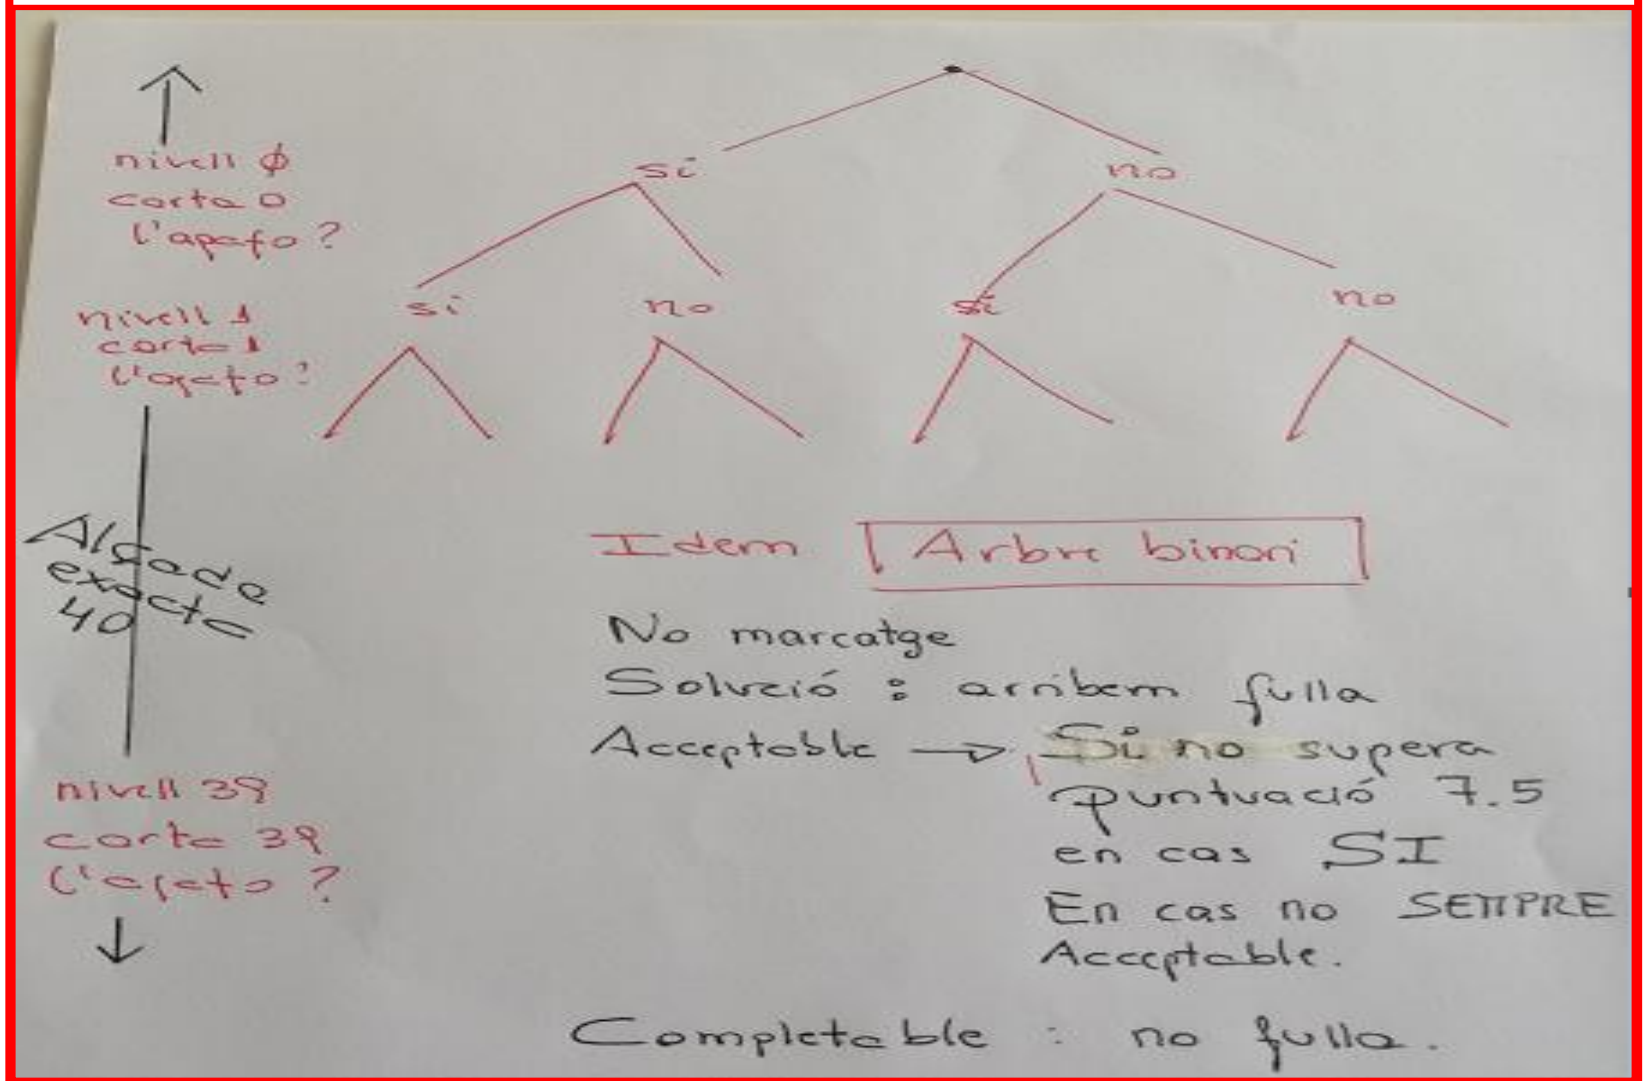 nivell φ
carta 0
l'agafo?
si
no
nivell 1
carta 1
l'agafo?
si
no
si
no
Alçada
exacta
40
Idem Arbre binari
No marcatge
Solució : arribem fulla
Acceptable → Si no supera
puntuació 7.5
en cas SI
En cas no SEMPRE
Acceptable.
nivell 39
carta 39
l'agafo?
Completable : no fulla.